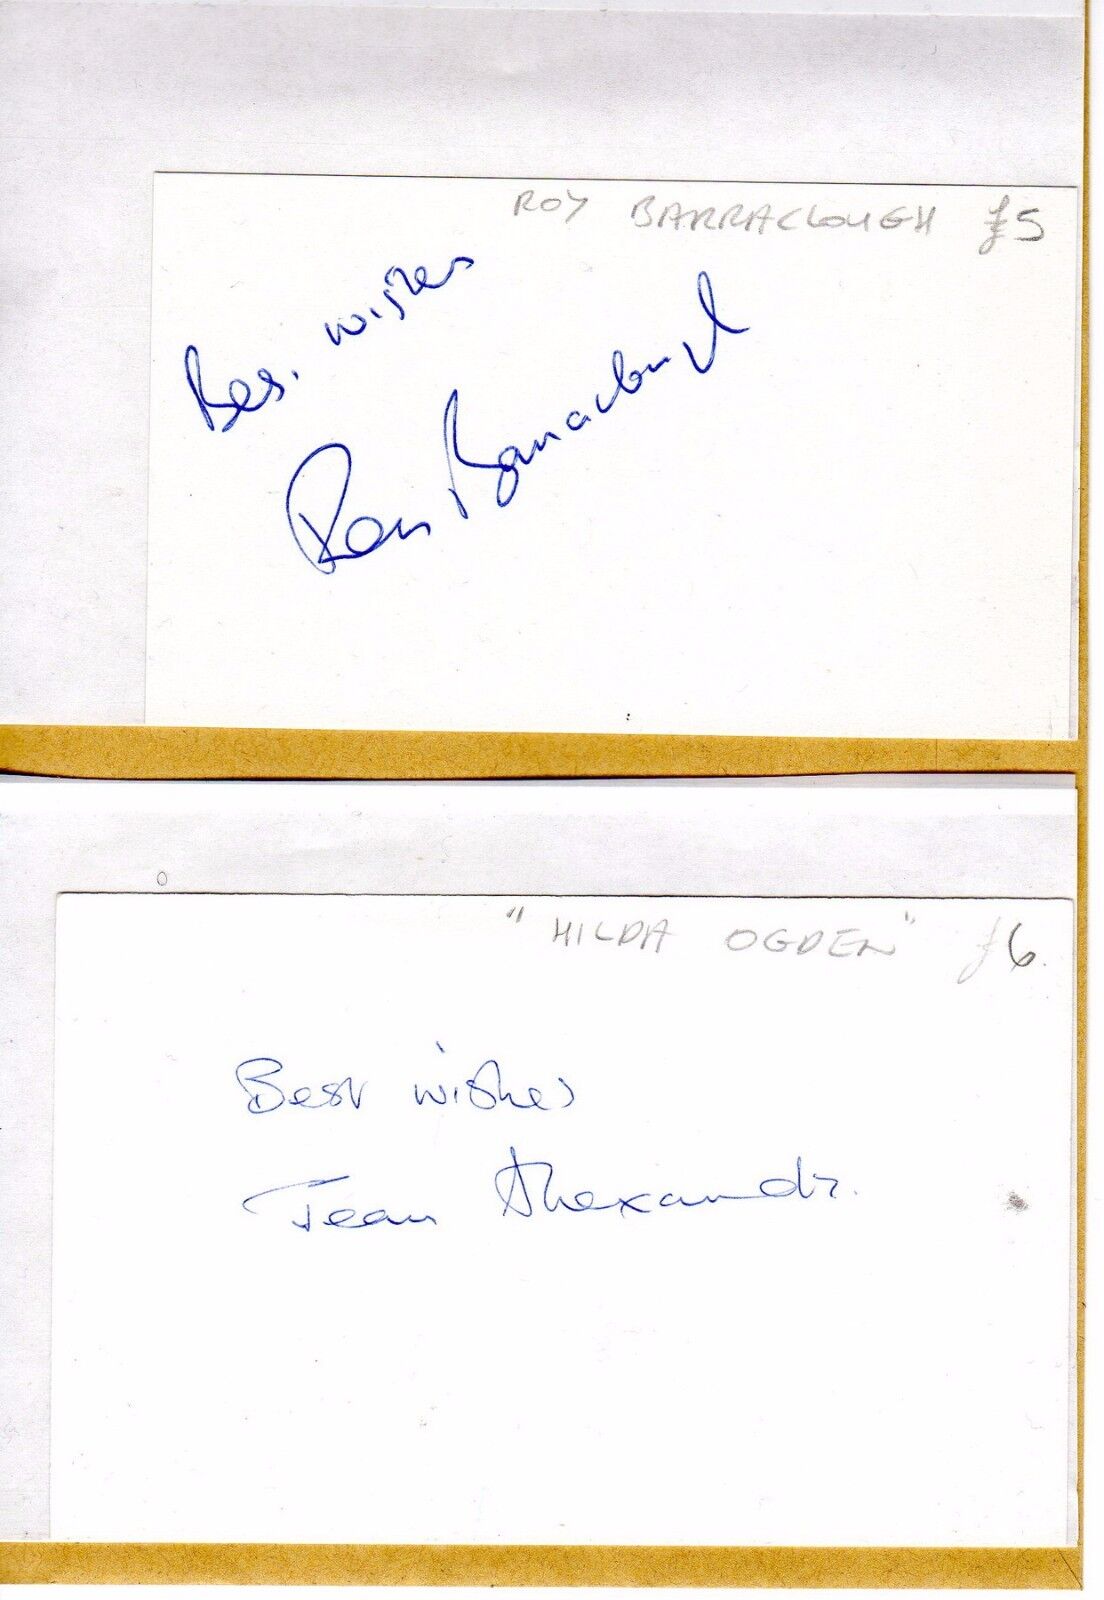 ROY BARRACLOUGH £5
Bes. wishes
Roy Barraclough
"HILDA OGDEN" £6.
Best wishes
Jean Alexander